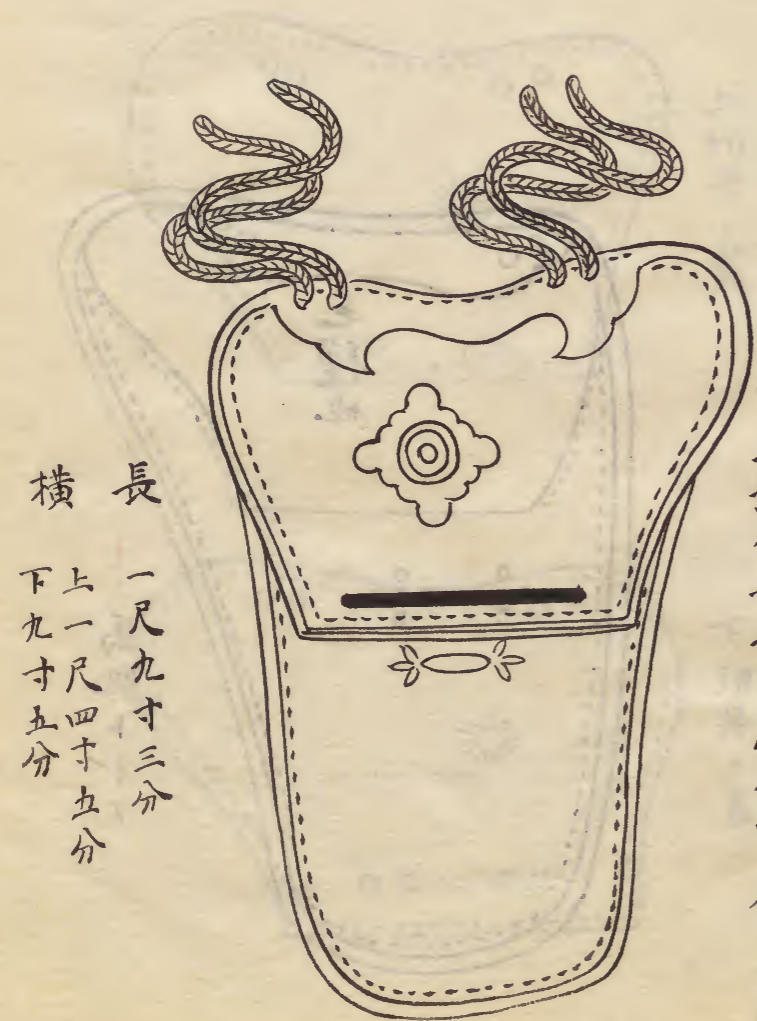 長 一尺九寸三分
横 上一尺四寸五分
下九寸五分